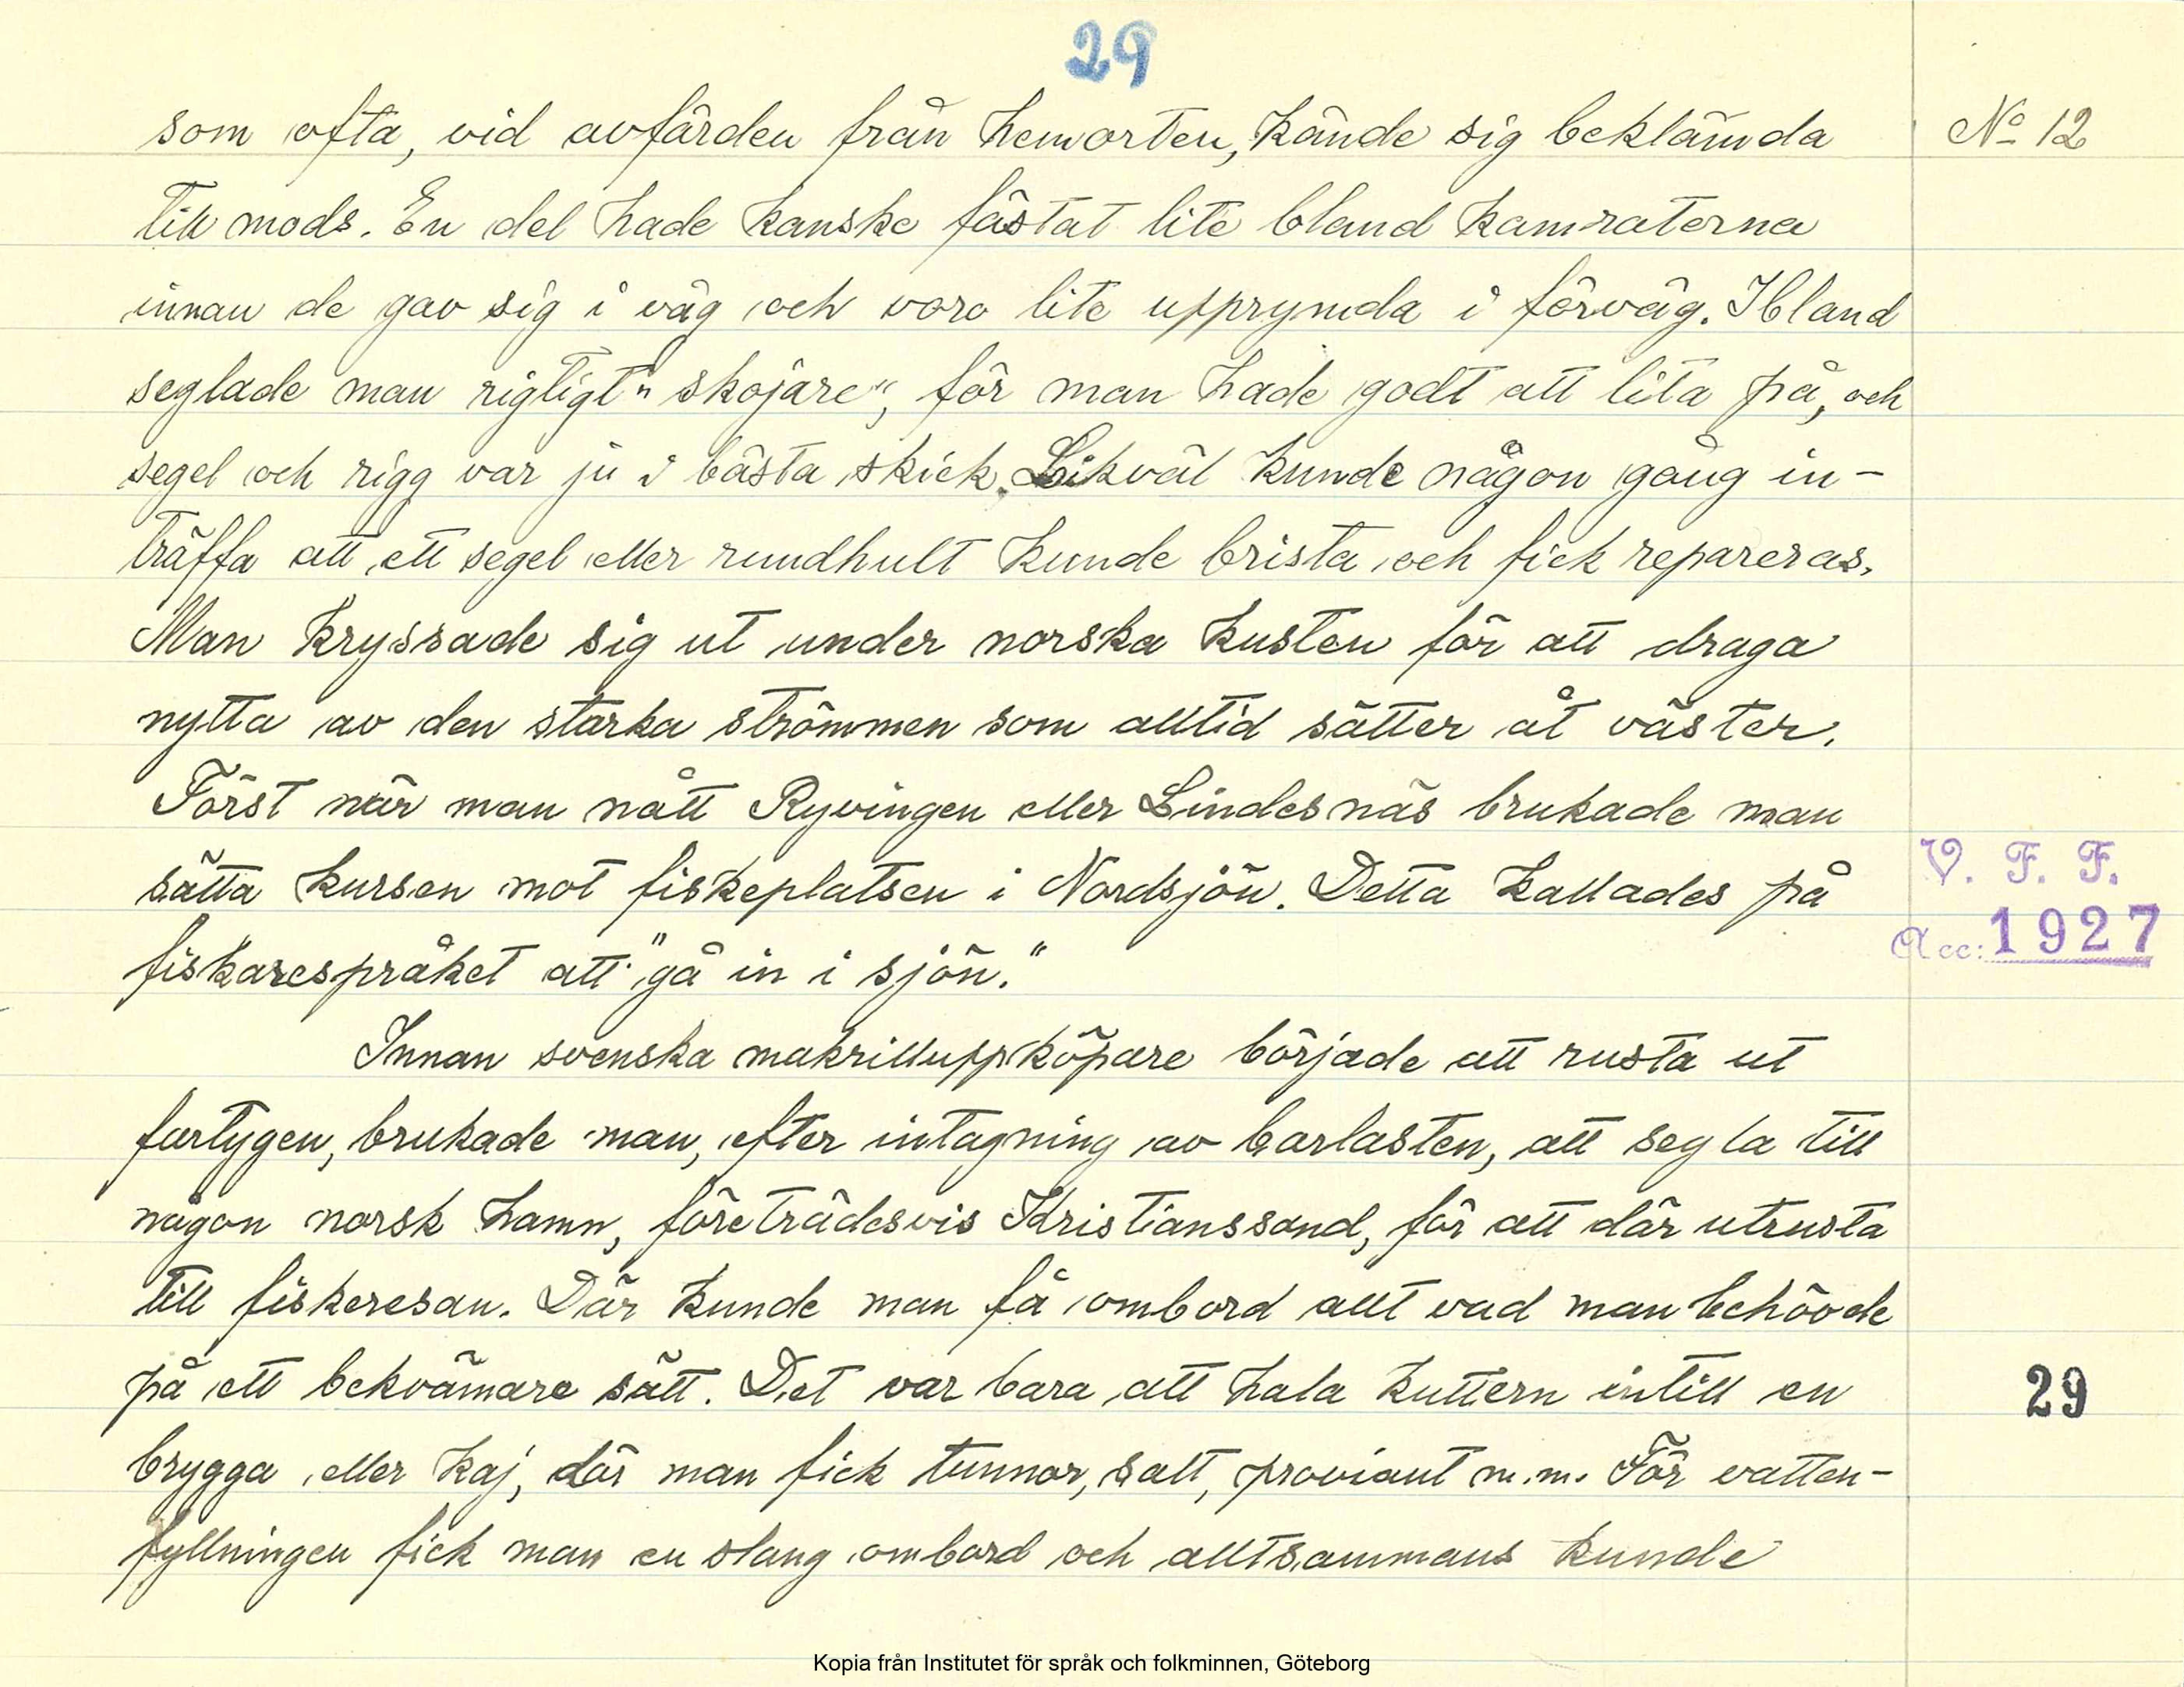 29
som ofta, vid avfärden från hemorten, kände sig beklämda
till mods. En del hade kanske fästat lite bland kamraterna
innan de gav sig i väg och voro lite upprymda i förväg. Ibland
seglade man rigtigt "skojare", för man hade godt att lita på, och
segel och rigg var ju i bästa skick. Likväl kunde någon gång in-
träffa att ett segel eller rundhult kunde brista och fick repareras.
Man kryssade sig ut under norska kusten för att draga
nytta av den starka strömmen som alltid sätter åt väster.
Först när man nått Ryvingen eller Lindesnäs brukade man
sätta kursen mot fiskeplatsen i Nordsjön. Detta kallades på
fiskarespråket att "gå in i sjön."
Innan svenska makrilluppköpare började att rusta ut
fartygen, brukade man, efter intagning av barlasten, att segla till
någon norsk hamn, företrädesvis Kristianssand, för att där utrusta
till fiskeresan. Där kunde man få ombord allt vad man behövde
på ett bekvämare sätt. Det var bara att hala kuttern intill en
brygga eller kaj, där man fick tunnor, salt, proviant m.m. För vatten-
fyllningen fick man en slang ombord och alltsammans kunde
No 12
V. F. F.
Acc: 1927
29
Kopia från Institutet för språk och folkminnen, Göteborg